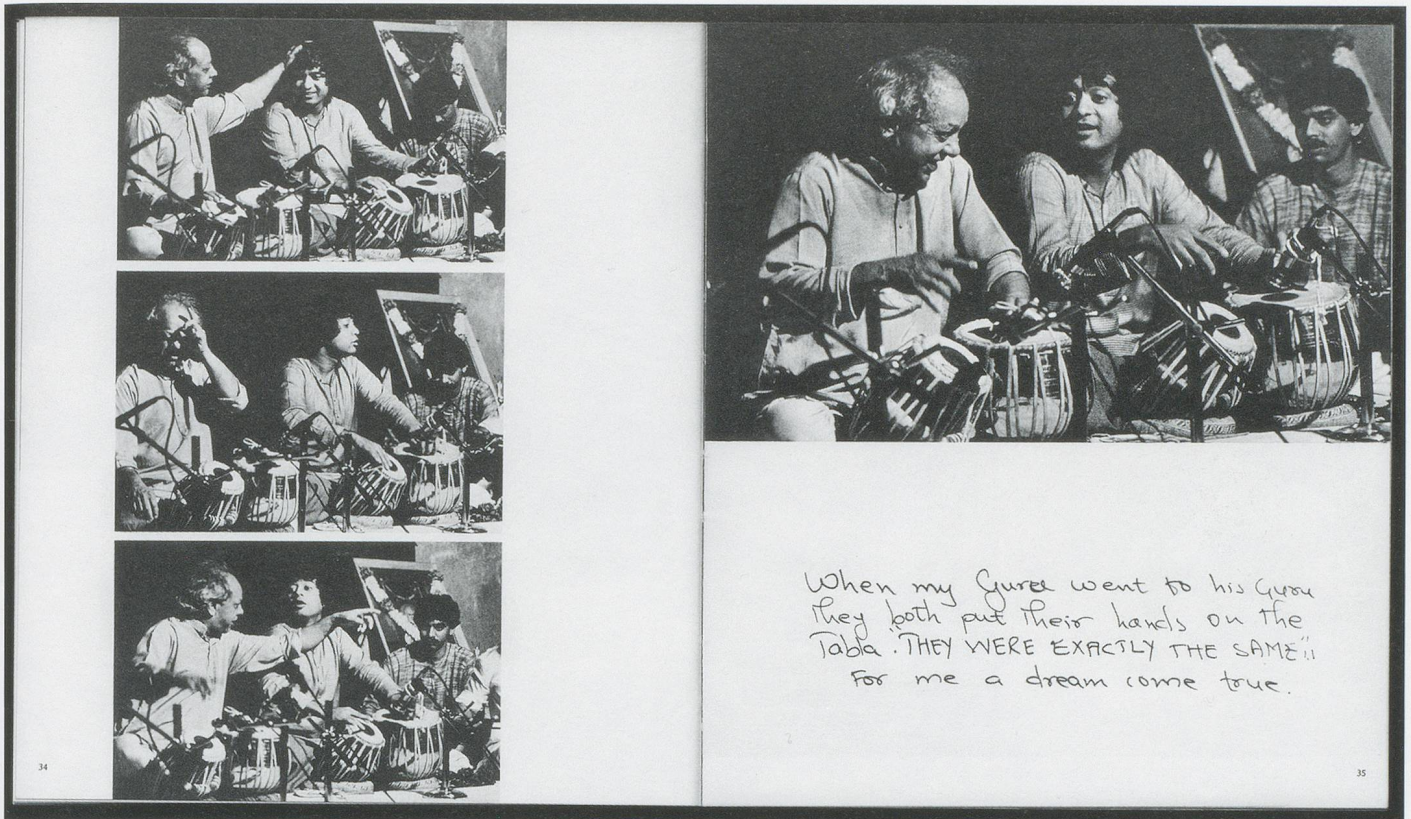 When my Guru went to his Guru
They both put Their hands on The
Tabla. THEY WERE EXACTLY THE SAME!!
For me a dream come true.
34
35